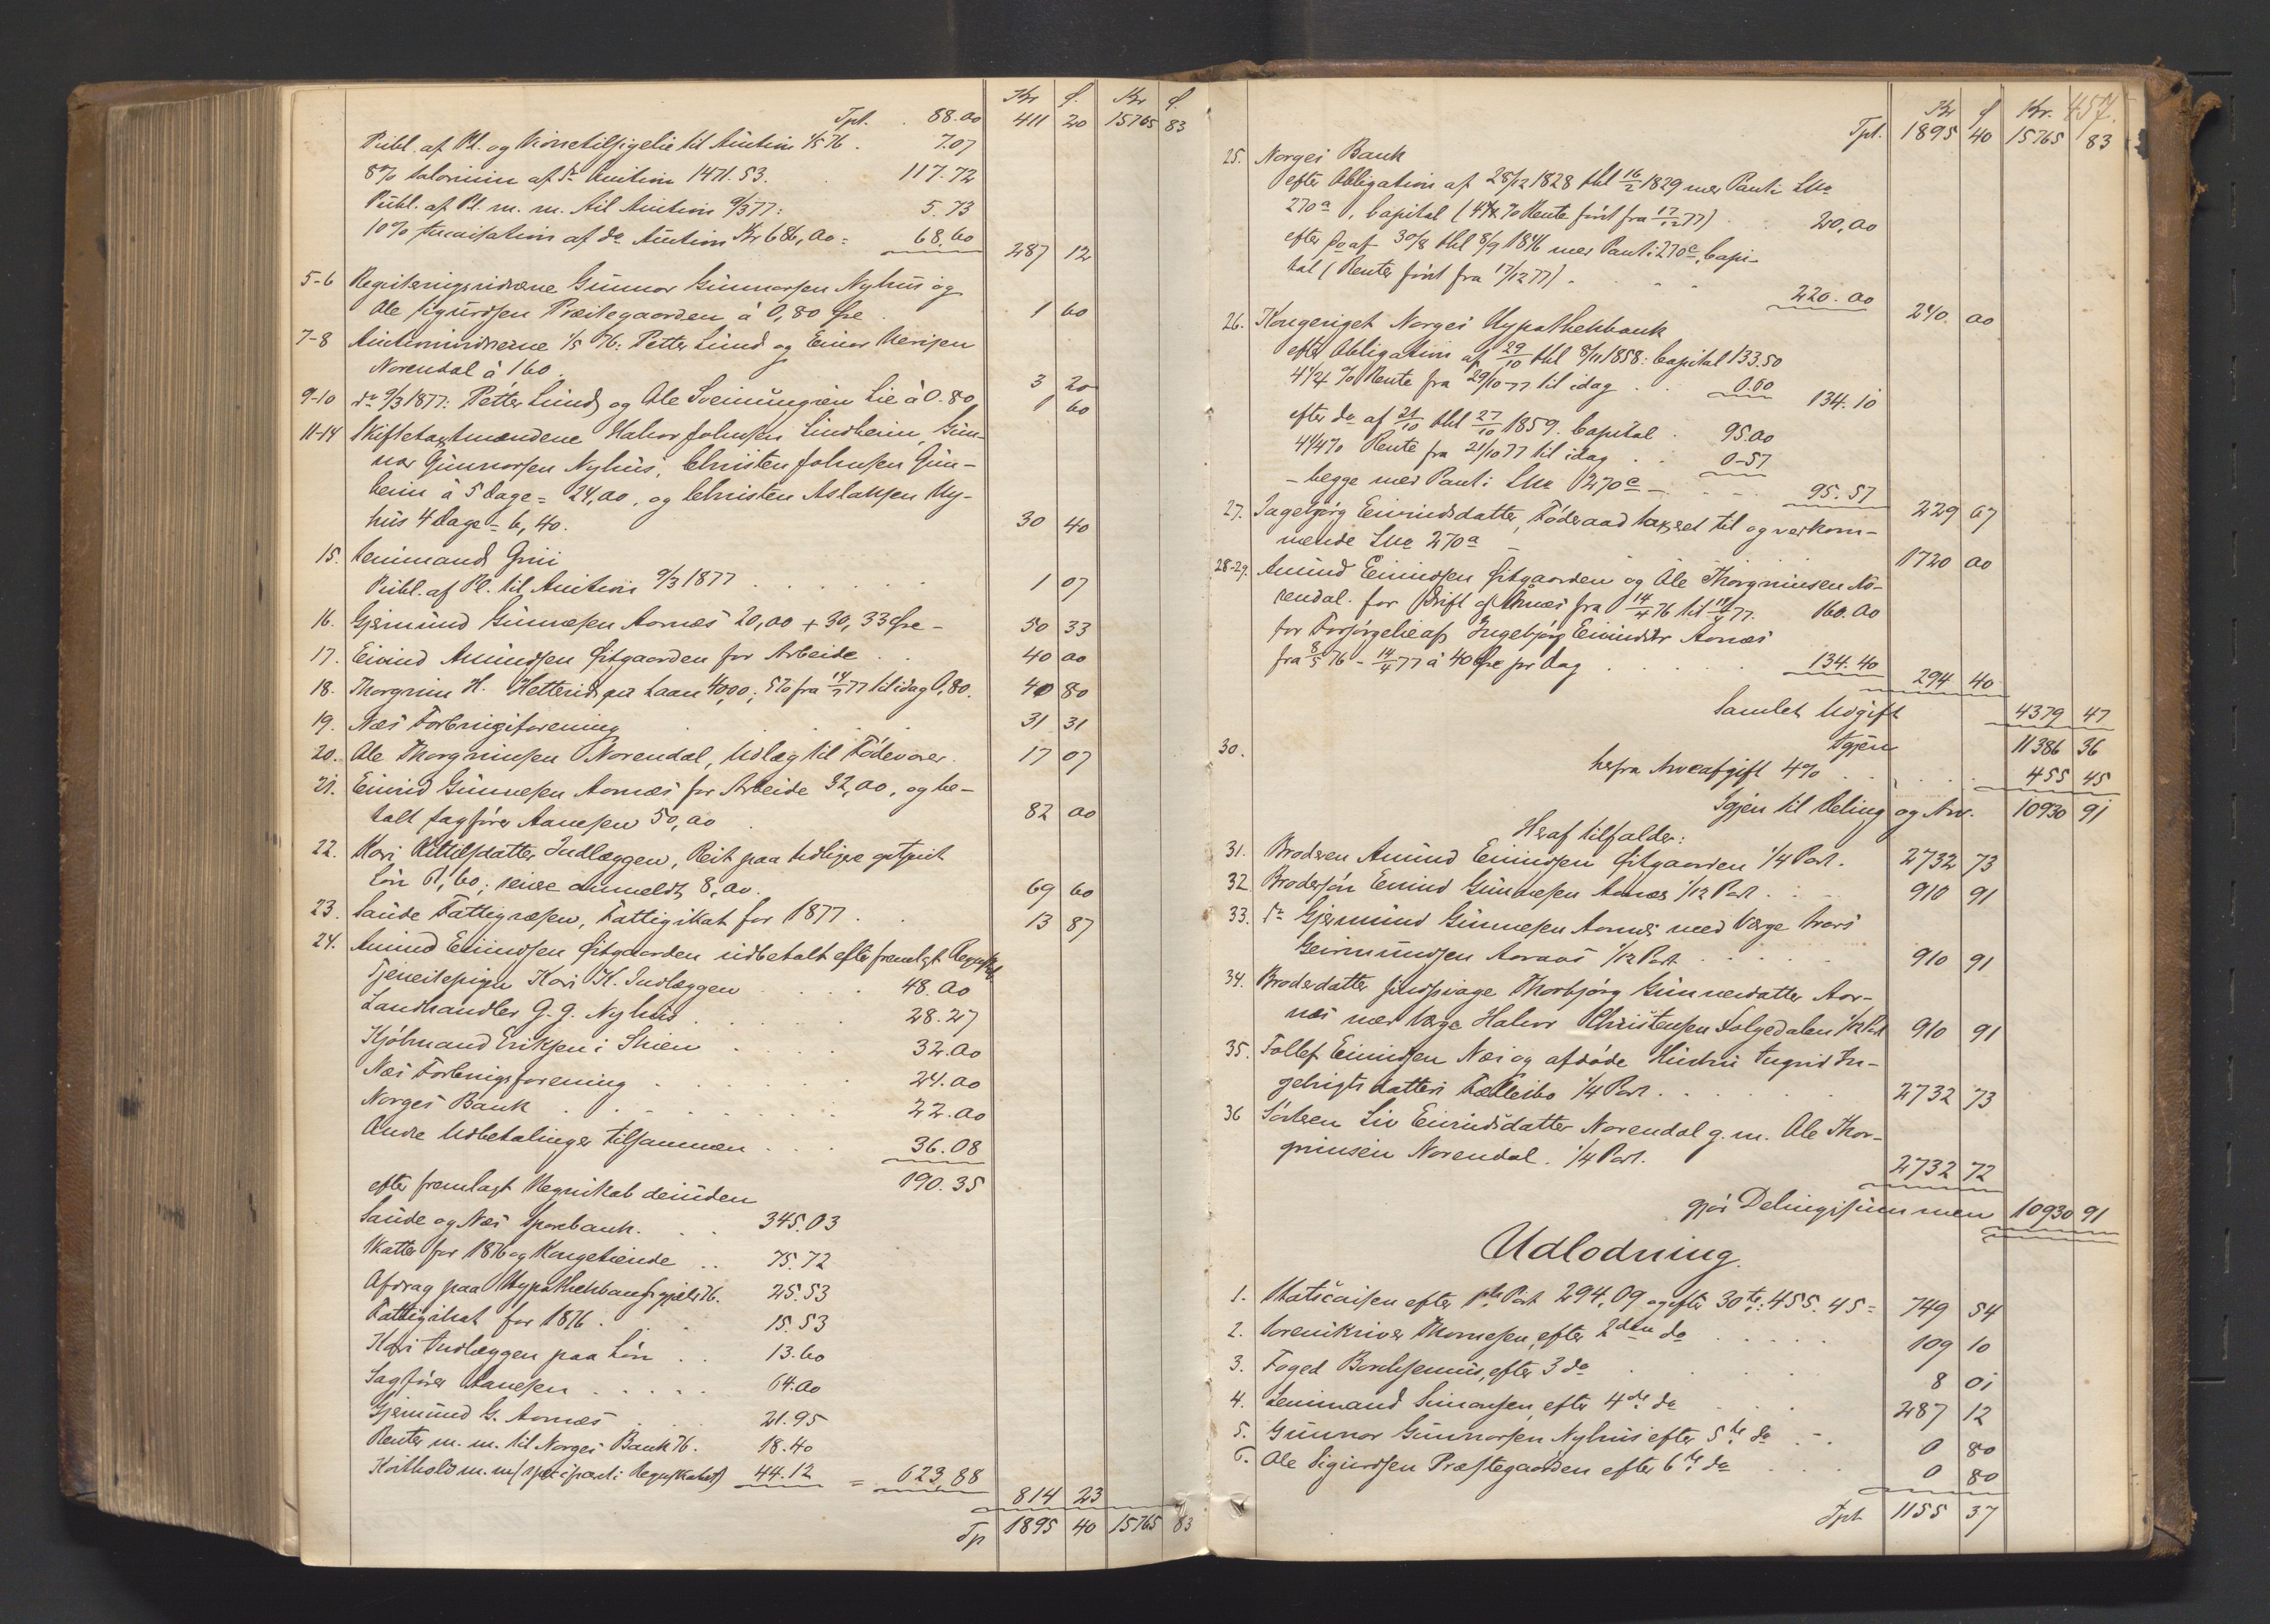 Kr ø. Kr ø.
Tpt. 88.00 411 20 15765 83
Publ. af Pl. og til Auction 1/5 76. 7.07
8% af do Auction 1471.53. 117.72
Publ. af Pl. m. m. til Auction 9/3 77: 5.73
10% af do Auction Kr 686,00 = 68.60 287 12
5-6 Registeringsvidnerne Gunnar Gunnarsen Nyhus og
Ole Sigurdsen Præstegaarden à 0,80 Øre 1 60
7-8 Auctionsvidnerne 1/5 76: Petter Lund og Einar
Norendal à 160. 3 20
9-10 do 9/3 1877: Petter Lund og Ole Sveinungsen Lie à 0.80 1 60
11-14 Skiftetaxtmændene Halvor Johnsen Lindheim, Gun-
nar Gunnarsen Nyhus, Christen Johnsen Gun-
heim à 5 Dage = 24,00, og Christen Aslaksen Ny-
hus 4 Dage = 6,40. 30 40
15. Lensmand
Publ. af Pl. til Auction 9/3 1877 1 07
16. Gjermund Gunnesen Aarnæs 20,00 + 30,33 Øre 50 33
17. Eivind Amundsen Sitgaarden for Arbeide 40 00
18. Thorgrim H. paa Laan 40,00; 5% fra 77 til idag 0,80. 40 80
19. Næs Forbrugsforening 31 31
20. Ole Thorgrimsen Norendal, Udlæg til Fødevarer. 17 07
21. Eivind Gunnesen Aarnæs for Arbeide 32,00, og be-
talt Sagfører Aanesen 50,00 82 00
22. Kari Kittilsdatter Indlæggen, Rest paa tidligere
Løn 61,60; senere anmeldt 8,00. 69 60
23. Saude Fattigvæsen, Fattigskat for 1877. 13 87
24. Amund Eivindsen Sitgaarden udbetalt efter fremlagt Regnskab
Tjenestepigen Kari K. Indlæggen 48.00
Landhandler G. G. Nyhus 28.27
Kjøbmand Eriksen i Skien 32.00
Næs Forbrugsforening 24.00
Norges Bank 22.00
Andre Udbetalinger tilsammen 36.08
190.35
efter fremlagt Regnskab desuden
Saude og Næs Sparebank. 345.03
Skatter for 1876 og Kongetiende 75.72
Afdrag paa Hypothekbanksgjæld 76. 25.53
Fattigskat for 1876. 15.53
Kari Indlæggen paa Løn 13.60
Sagfører Aanesen 64.00
Gjermund G. Aarnæs 21.95
Renter m. m. til Norges Bank 76. 18.40
Kosthold m. m. (spec. i Regnskabet) 44.12 = 623,88
814 23
Tp 1895 40 15765 83
457.
Kr ø Kr.
Tpt. 1895 40 15765 83
25. Norges Bank
efter Obligation af 28/12 1828 thl 16/2 1829 med Pant i LNo
270a, Capital (4 1/2 % Rente først fra 17/12 77) 20,00
efter do af 30/8 thl 8/9 1846 med Pant i 270c, Capi-
tal (Renter først fra 17/12 77) 220.00 240. 00
26. Kongeriget Norges Hypothekbank
efter Obligation af 29/10 thl 8/11 1858: Capital 133.50
4 1/4 % Rente fra 29/10 77 til idag 0.60 134.10
efter do af 21/10 thl 27/10 1859. Capital 95.00
4 1/4 % Rente fra 21/10 77 til idag 0-57
- begge med Pant i LNo 270c - 95.57 229 67
27. Ingebjørg Eivindsdatter, Føderaad taxeret til og vedkom-
mende LNo 270a 1720 00
28-29. Amund Eivindsen Sitgaarden og Ole Thorgrimsen No-
rendal. for Drift af Aarnæs fra 14/4 76 til 14/4 77. 160.00
for Forsørgelse af Ingebjørg Eivindsdtr Aarnæs
fra 8/5 76 - 14/4 77 à 40 Øre pr Dag 134.40 294 40
Samlet Udgift 4379 47
30. Igjen 11386 36
herfra Arveafgift 4% 455 45
Igjen til Deling og Arv. 10930 91
Heraf tilfalder:
31. Broderen Amund Eivindsen Sitgaarden 1/4 Part. 2732 73
32. Brodersøn Eivind Gunnesen Aarnæs 1/12 Part 910 91
33. do Gjermund Gunnesen Aarnæs med Værge Ivars
Geirmundsen Aaraas 1/12 Part 910 91
34. Broderdatter sindssvage Thorbjørg Gunnesdatter Aar-
næs med Værge Halvor Christensen Folgedalen 1/12 Part 910 91
35. Tollef Eivindsen Næs og afdøde Hustru Ingrid In-
gebrigtsdatters Fællesbo 1/4 Part 2732 73
36 Søsteren Liv Eivindsdatter Norendal g. m. Ole Thor-
grimsen Norendal. 1/4 Part. 2732 72
gjør Delingssummen 10930 91
Udlodning.
1. Statscassen efter 1ste Post 294,09 og efter 30te: 455.45 = 749 54
2. Sorenskriver Thomesen, efter 2den do 109 10
3. Foged Borchsenius, efter 3 do 8 01
4. Lensmand Simonsen, efter 4de do 287 12
5. Gunnar Gunnarsen Nyhus efter 5te do 0 80
6. Ole Sigurdsen Præstegaarden efter 6te do 0 80
Tpt 1155 37